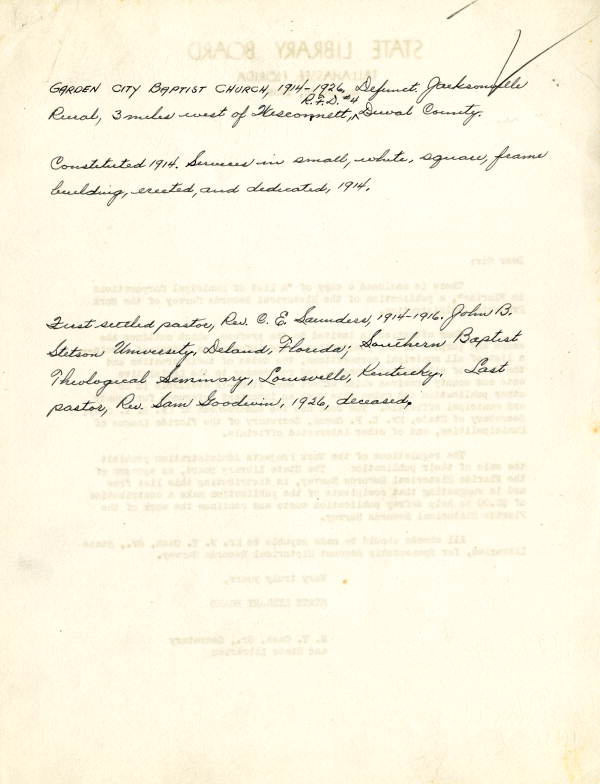 GARDEN CITY BAPTIST CHURCH, 1914-1926, Defunct. Jacksonville
R.F.D. #4
Rural, 3 miles west of Wesconnett, Duval County.
Constituted 1914. Services in small, white, square, frame
building, erected, and dedicated, 1914.
First settled pastor, Rev. C. E. Saunders, 1914-1916. John B.
Stetson University, Deland, Florida; Southern Baptist
Theological Seminary, Louisville, Kentucky. Last
pastor, Rev. Sam Goodwin, 1926, deceased.